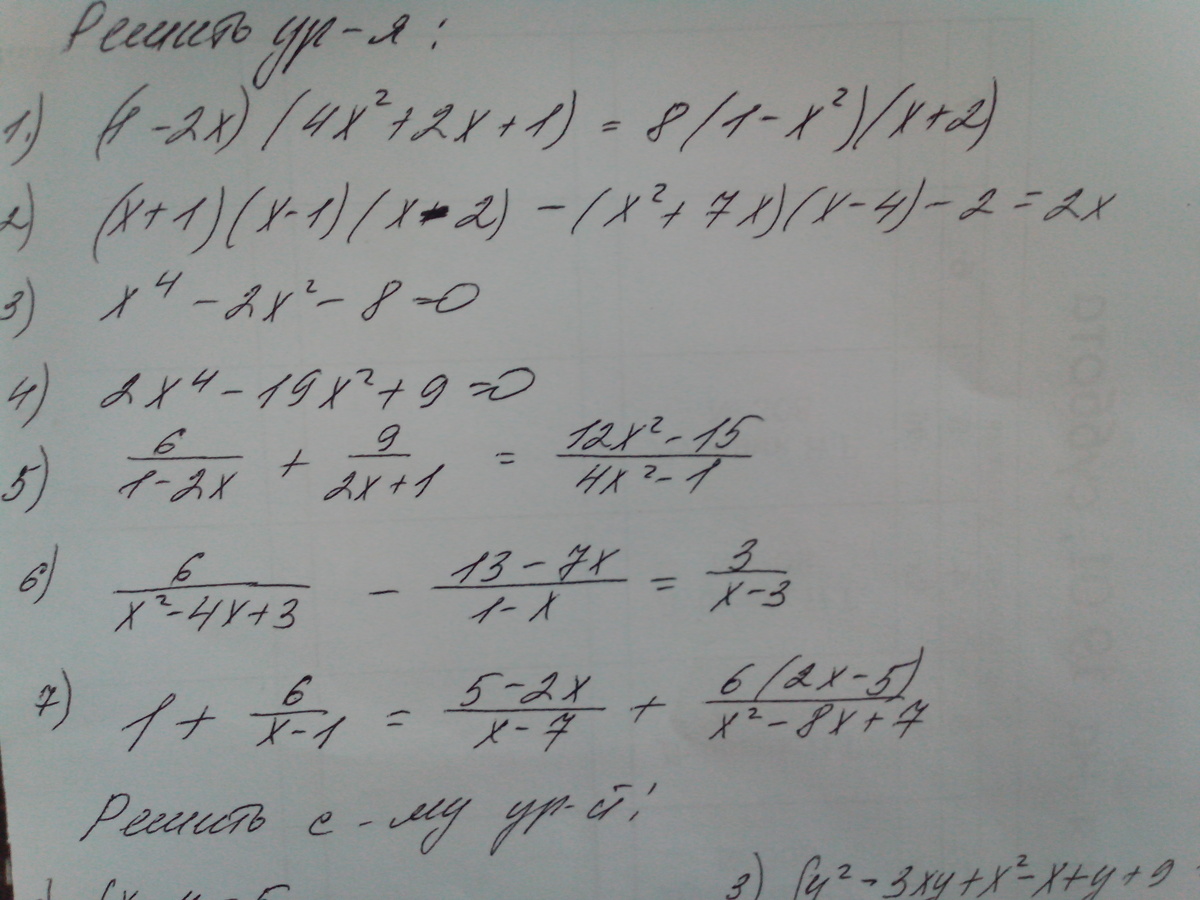 Решить ур-я:
1.) (1-2x)(4x²+2x+1) = 8(1-x²)(x+2)
2) (x+1)(x-1)(x-2) - (x²+7x)(x-4) - 2 = 2x
3) x⁴ - 2x² - 8 = 0
4) 2x⁴ - 19x² + 9 = 0
5) 6/(1-2x) + 9/(2x+1) = (12x²-15)/(4x²-1)
6) 6/(x²-4x+3) - (13-7x)/(1-x) = 3/(x-3)
7) 1 + 6/(x-1) = (5-2x)/(x-7) + 6(2x-5)/(x²-8x+7)
Решить с-му ур-й:
3) {y²-3xy+x²-x+y+9